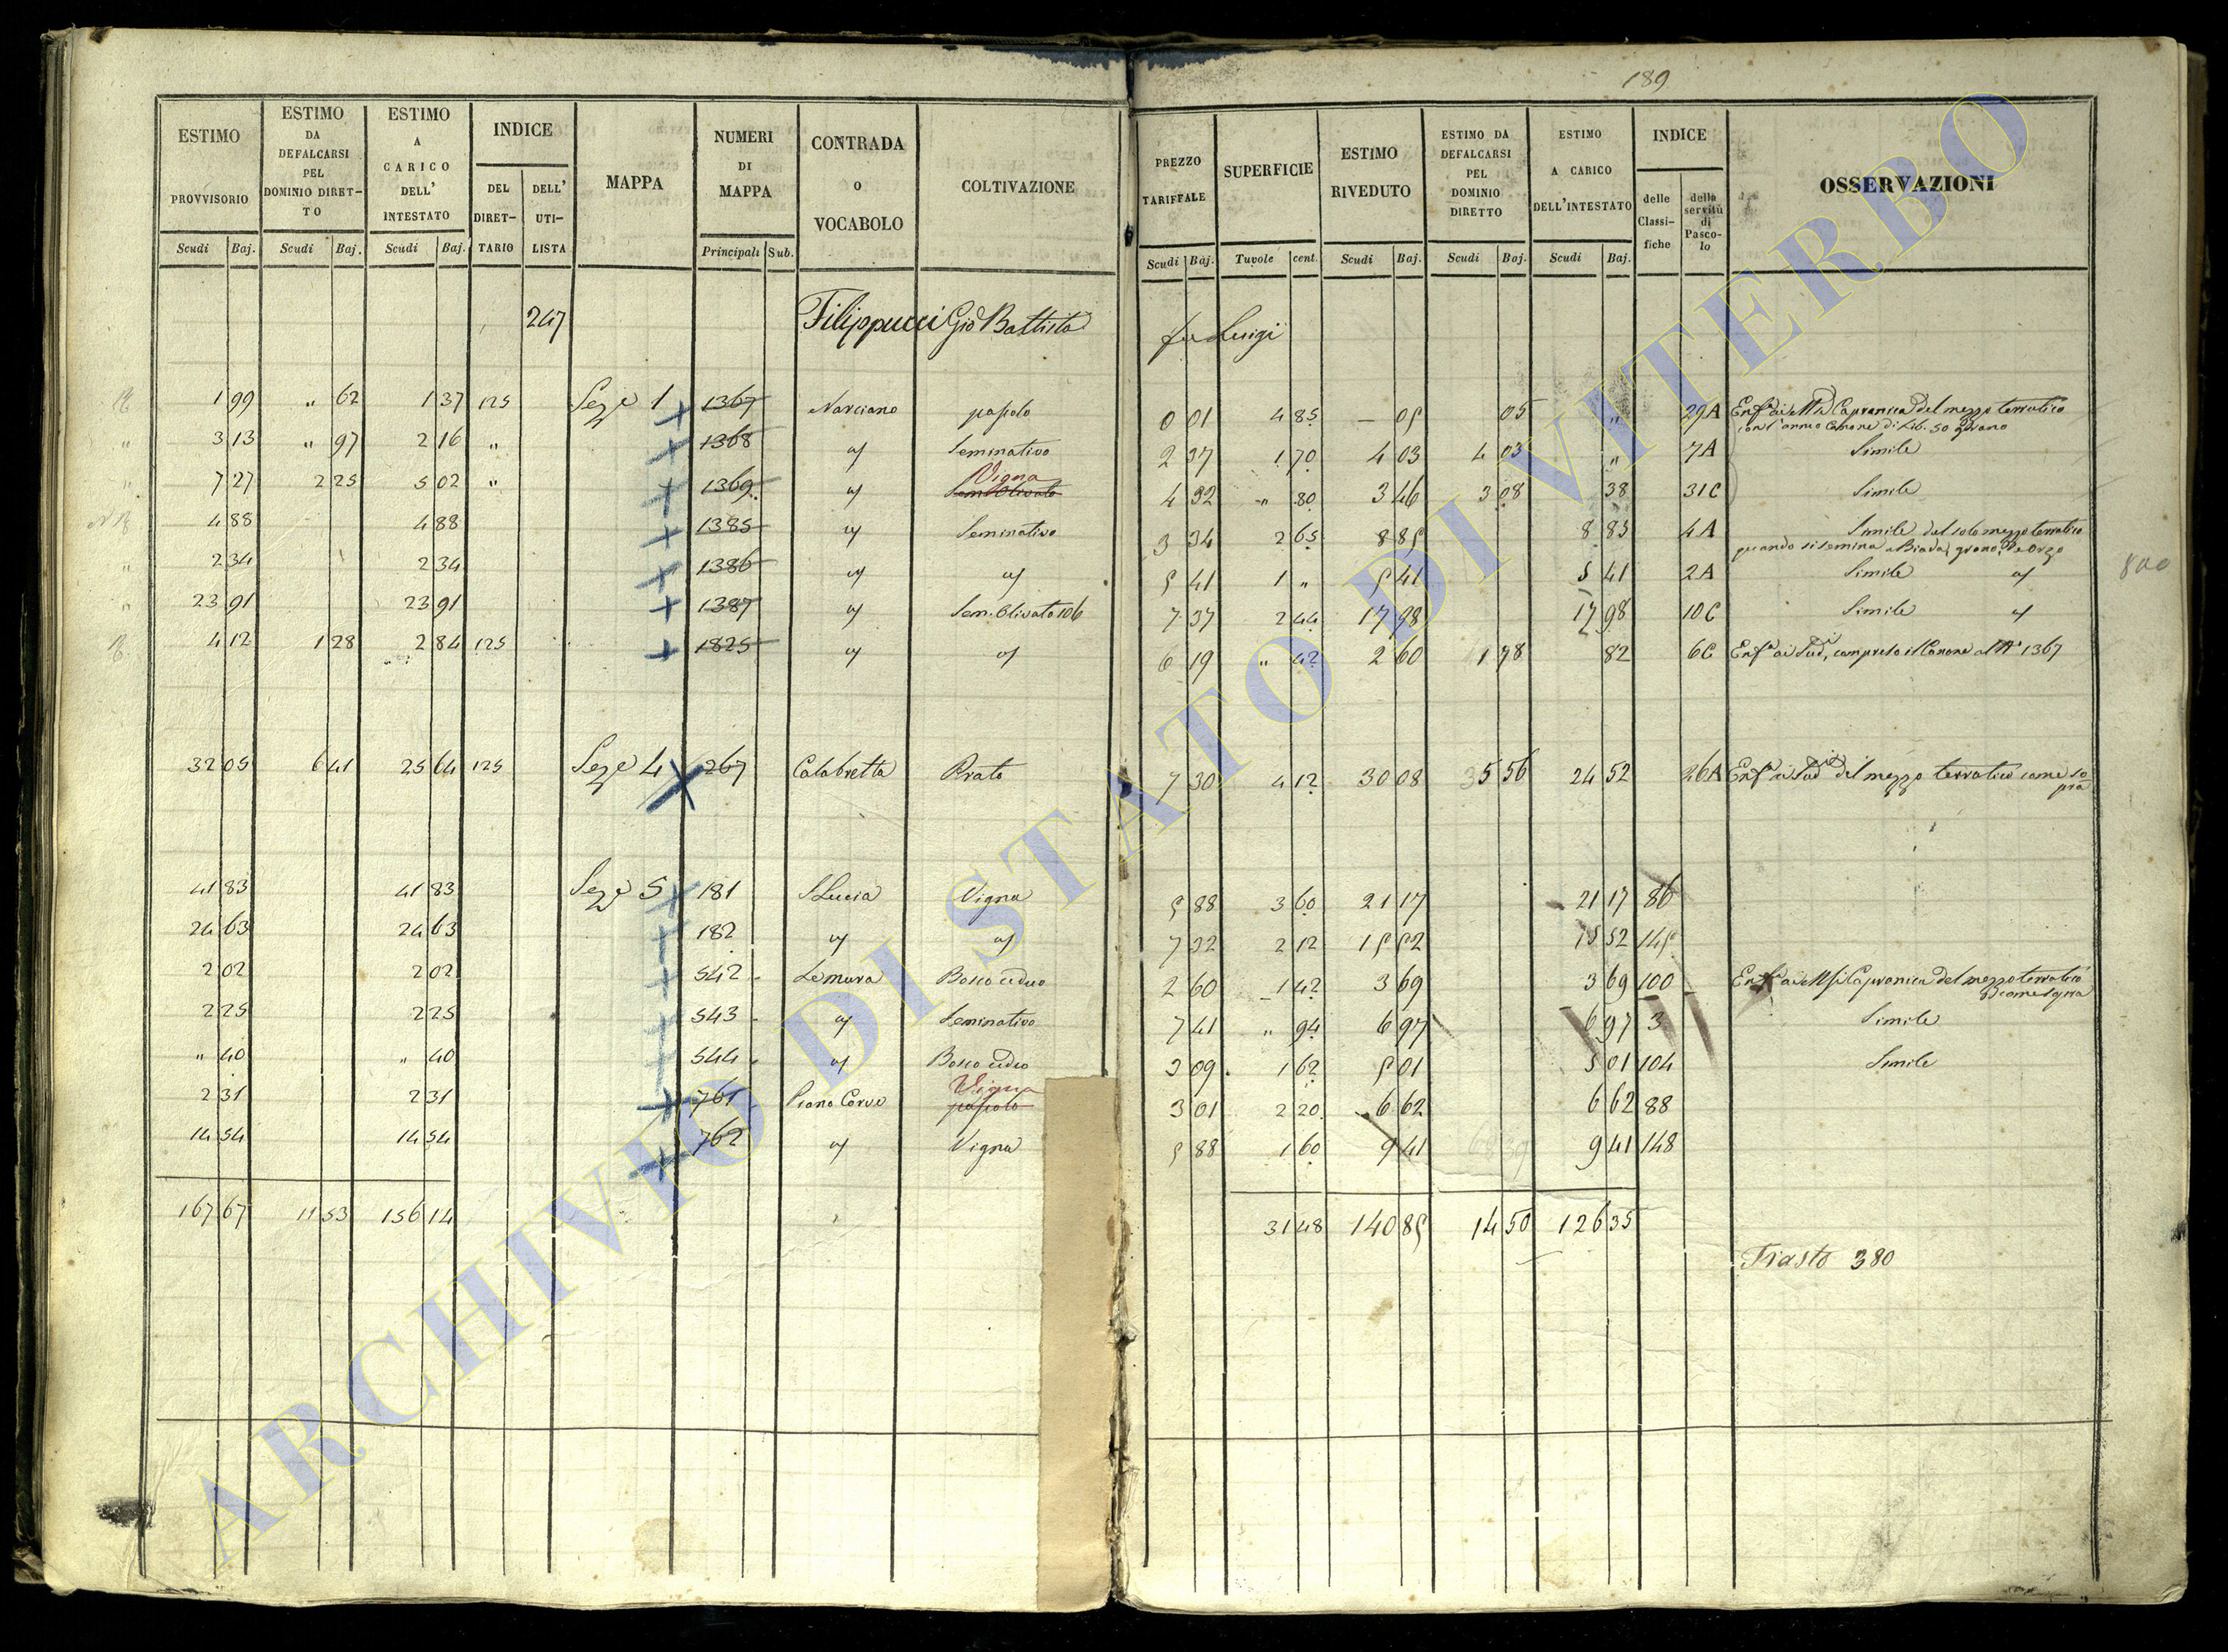 189
ESTIMO PROVVISORIO Scudi Baj.
ESTIMO DA DEFALCARSI PEL DOMINIO DIRET-TO Scudi Baj.
ESTIMO A CARICO DELL' INTESTATO Scudi Baj.
INDICE DEL DIRET-TARIO DELL' UTI-LISTA
MAPPA
NUMERI DI MAPPA Principali Sub.
CONTRADA O VOCABOLO
COLTIVAZIONE
PREZZO TARIFFALE Scudi Baj.
SUPERFICIE Tavole cent.
ESTIMO RIVEDUTO Scudi Baj.
ESTIMO DA DEFALCARSI PEL DOMINIO DIRETTO Scudi Baj.
ESTIMO A CARICO DELL'INTESTATO Scudi Baj.
INDICE delle Classi-fiche della servitù di Pasco-lo
OSSERVAZIONI
247 Filippucci Gio Battista fu Luigi
1 99 " 62 1 37 125 Sez.e 1 1367 Narciano pascolo 0 01 4 85 — 05 05 " 29A Enf.a ai Capranica del mezzo terratico
con l'annuo Canone di Lib. 50 grano
3 13 " 97 2 16 " 1368 Seminativo 2 37 1 70 4 03 4 03 " 7A Simile
Vigna
7 27 2 25 5 02 " 1369 Sem. Olivato 4 32 " 80 3 46 3 08 38 31C Simile
4 88 4 88 1385 Seminativo 3 34 2 65 8 85 8 85 4A Simile del solo mezzo terratico
quando si semina a Biada, grano, ed Orzo
2 34 2 34 1386 5 41 1 " 5 41 5 41 2A Simile
23 91 23 91 1387 Sem. Olivato 106 7 37 2 44 17 98 17 98 10C Simile
4 12 1 28 2 84 125 1825 6 19 " 42 2 60 1 78 82 6C Enf.a ai Sud.i, compreso il Canone al N° 1367
32 05 6 41 25 64 125 Sez.e 4 267 Calabretta Prato 7 30 4 12 30 08 5 56 24 52 26A Enf.a ai Sud.i del mezzo terratico come so
pra
41 83 41 83 Sez.e 5 181 S. Lucia Vigna 5 88 3 60 21 17 21 17 86
24 63 24 63 182 7 32 2 12 15 52 15 52 145
2 02 2 02 542 Le mura Bosco ceduo 2 60 1 42 3 69 3 69 100 Enf.a ai Capranica del mezzo terratico
come sopra
2 25 2 25 543 Seminativo 7 41 " 94 6 97 6 97 3 Simile
" 40 " 40 544 Bosco ceduo 3 09 1 62 5 01 5 01 104 Simile
Vigna
2 31 2 31 761 Piano Corve pascolo 3 01 2 20 6 62 6 62 88
14 54 14 54 762 Vigna 5 88 1 60 9 41 9 41 148
167 67 11 53 156 14 31 48 140 85 14 50 126 35
Trasto 380
800
ARCHIVIO DI STATO DI VITERBO